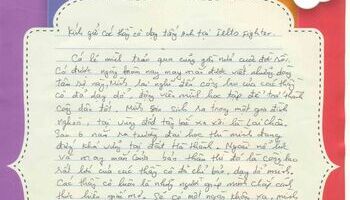 Kính gửi Các thầy cô dạy tiếng anh tại Iello Fighter.
Có lẽ mình trải qua cũng gần nửa cuộc đời rồi.
Có được ngày hôm nay may mắn được viết những dòng
tâm sự này, mình lại nghĩ đến công lao của các thầy
cô đã dạy dỗ, động viên mình học tập để trở thành
Công dân tốt. Mình sinh ra trong một gia đình
nghèo, tại vùng đất tây bắc xa xôi là Lai Châu.
Sau 6 năm ra trường đại học thì mình đang
đứng chân vững tại đất Hà Thành. Ngoài nỗ lực
và may mắn của bản thân thì đó là công lao
rất lớn của các thầy cô đã chỉ bảo, dạy dỗ mình.
Các thầy cô luôn là những người giúp mình chắp cánh
thực hiện giấc mơ. Sẽ có một ngày không xa, mình